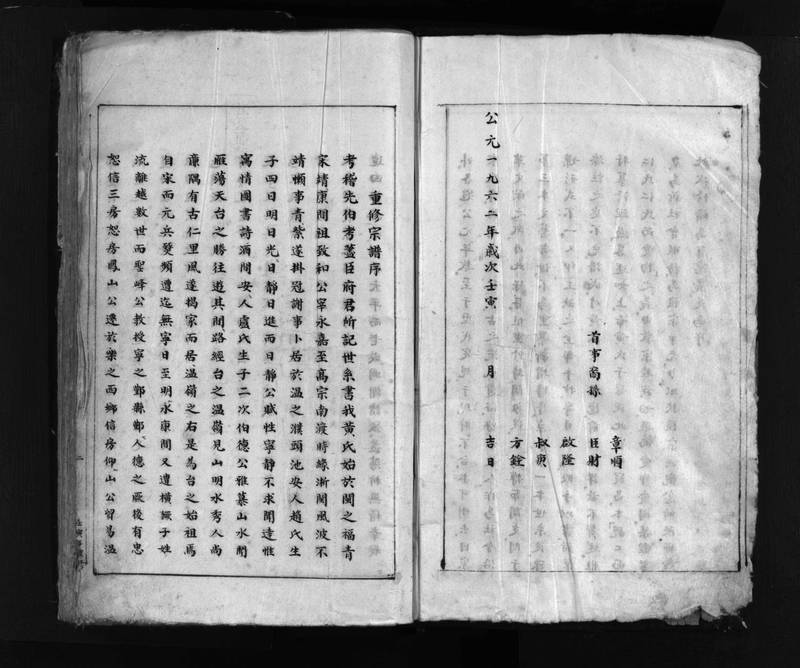 首事裔孫
章順
臣財
啟隆
叔庚
方銓
公元一九六二年歲次壬寅 月 吉日
重修宗譜序
考稽先伯考藎臣府君所記世系書我黃氏始於閩之福青
家靖康間祖致和公宰永嘉至高宗南渡時緣浙閩風波不
靖懶事青紫遂掛冠謝事卜居於溫之濮頭池安人趙氏生
子四曰明曰光曰靜曰進而曰靜公賦性寧靜不求聞達惟
寓情圖書詩酒間安人盧氏生子二次伯德公雅慕山水聞
雁蕩天台之勝往遊其間路經台之溫嶺見山明水秀人尚
廉隅有古仁里風遂揭家而居溫嶺之右是為台之始祖焉
自宋而元兵燹頻遭迄無寧日至明永康間又遭橫厥子姓
流離越數世而聖峰公教授寧之鄞縣鄞人德之厥後有忠
恕信三房恕房鳳山公遷於樂之西鄉信房仰山公貿易溫